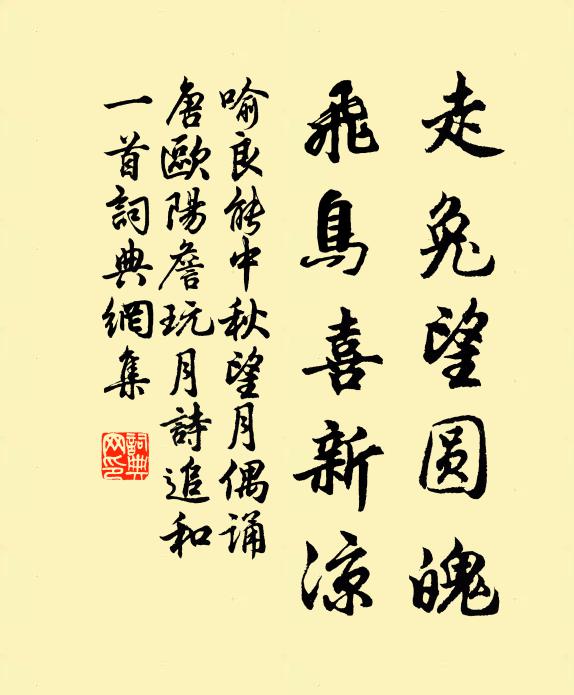 走兔望圆魄
飛鳥喜新涼
喻良能中秋望月偶诵
唐歐陽詹玩月詩追和
一首詞典網集
詞典网印